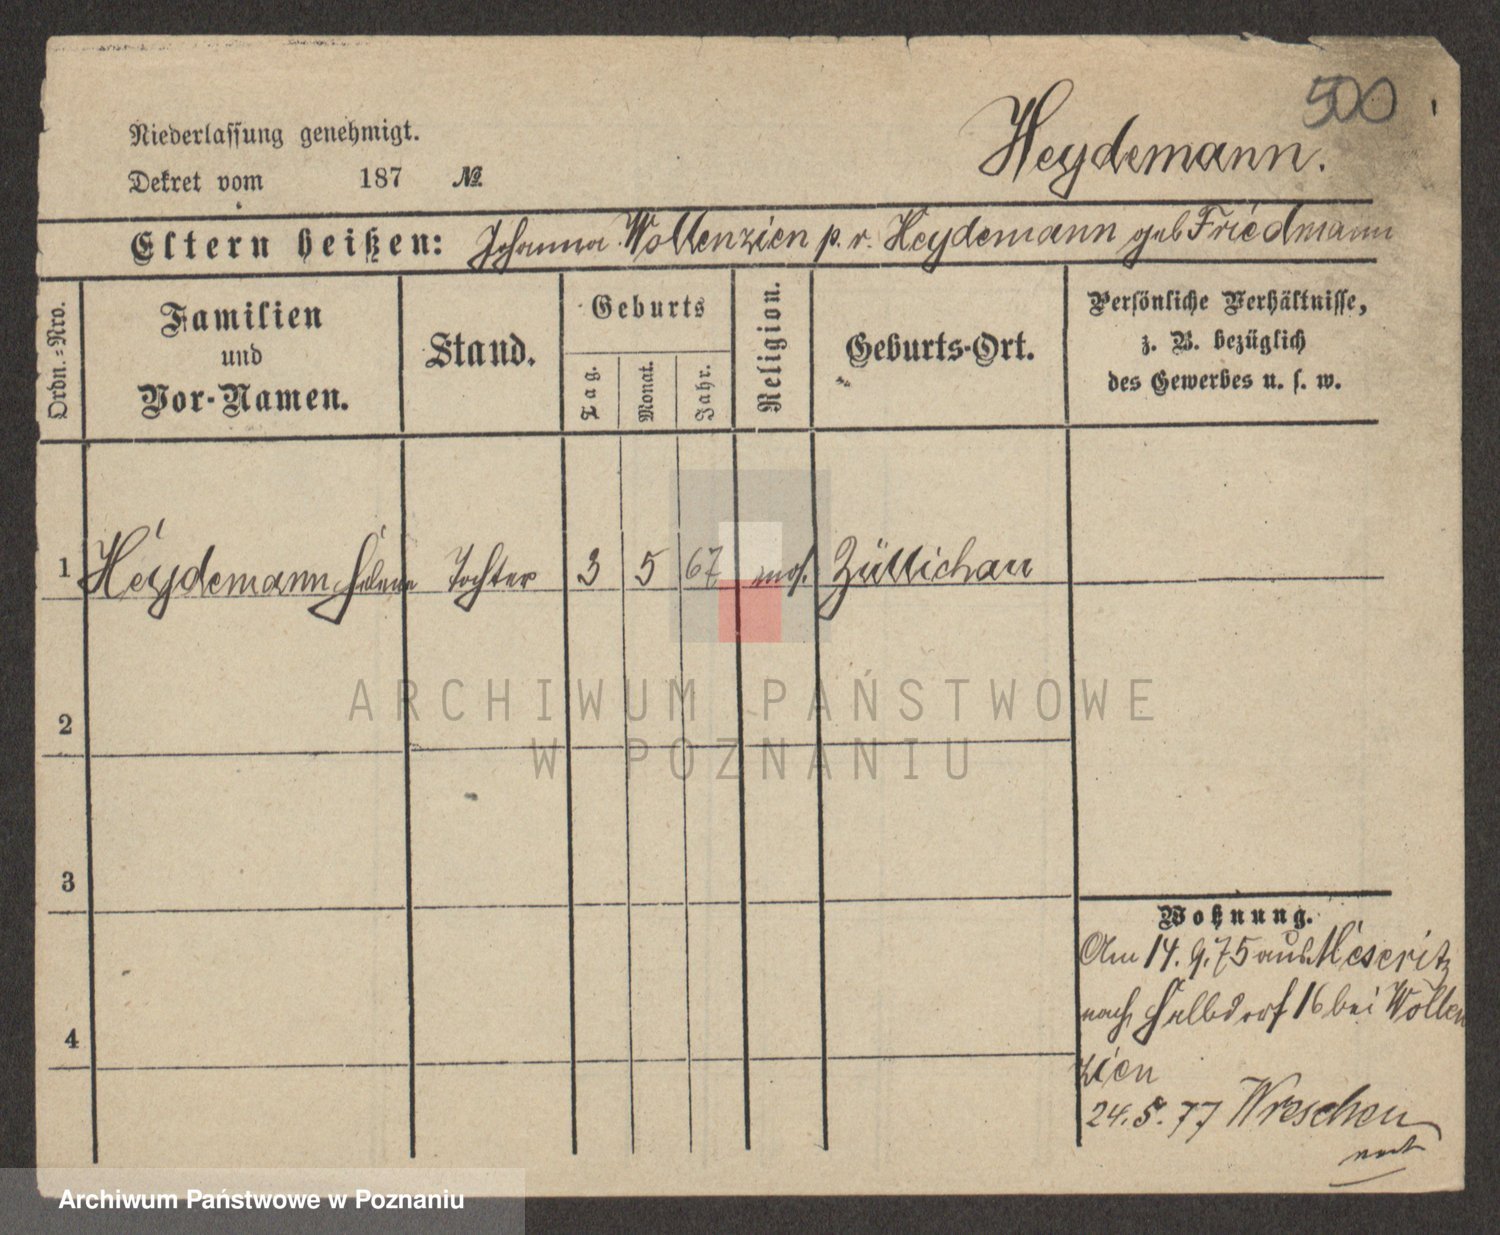 500
Niederlassung genehmigt.
Heydemann.
Dekret vom 187 №
Eltern heißen: Johanna Wollenzien p. r. Heydemann geb Friedmann
Ordn.=Nro.
Familien
und
Vor-Namen.
Stand.
Geburts
Tag.
Monat.
Jahr.
Religion.
Geburts-Ort.
Persönliche Verhältnisse,
z. B. bezüglich
des Gewerbes u. s. w.
1 Heydemann Helene Tochter 3 5 67 mos. Züllichau
ARCHIWUM PAŃSTWOWE
W POZNANIU
2
3
Wohnung.
Am 14. 9. 75 aus Meseritz
nach Halbdorf 16 bei Wollen
zien
4
24. 5. 77 Wreschen
Archiwum Państwowe w Poznaniu